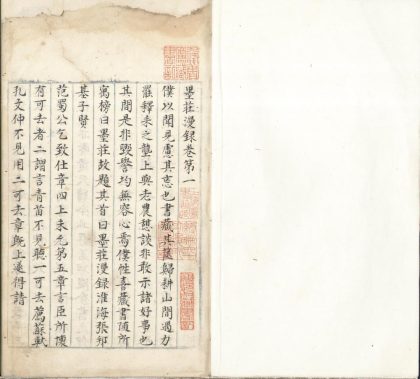 墨莊漫錄卷第一
僕以聞見慮其忘也書藏其篋歸耕山間遇力
罷釋耒之壟上與老農憩談非敢示諸好事也
其間是非毀譽均無容心焉僕性喜藏書隨所
寓榜曰墨莊故題其首曰墨莊漫錄淮海張邦
基子賢
范蜀公乞致仕章四上未允第五章言臣所懷
有可去者二謂言青苗不見聽一可去薦蘇軾
孔文仲不見用二可去章既上遂得請